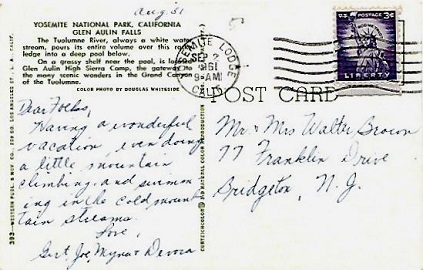 Aug 31
YOSEMITE NATIONAL PARK, CALIFORNIA
GLEN AULIN FALLS
The Tuolumne River, always a white water
stream, pours its entire volume over this
ledge into a deep pool below.
On a grassy shelf near the pool, is
Glen Aulin High Sierra Camp, the gateway to
the many scenic wonders in the Grand Canyon
of the Tuolumne.
COLOR PHOTO BY DOUGLAS WHITESIDE
YOSEMITE LODGE
SEP 2
1961
9-AM
CALIF.
U.S. POSTAGE 3¢
LIBERTY
POST CARD
Dear Folks,
Having a wonderful
vacation, even doing
a little mountain
climbing and swimm
ing in the cold moun
tain streams.
Love,
Gert, Joe, Myna & Devora
Mr & Mrs Walter Brown
77 Franklin Drive
Bridgeton, N.J.